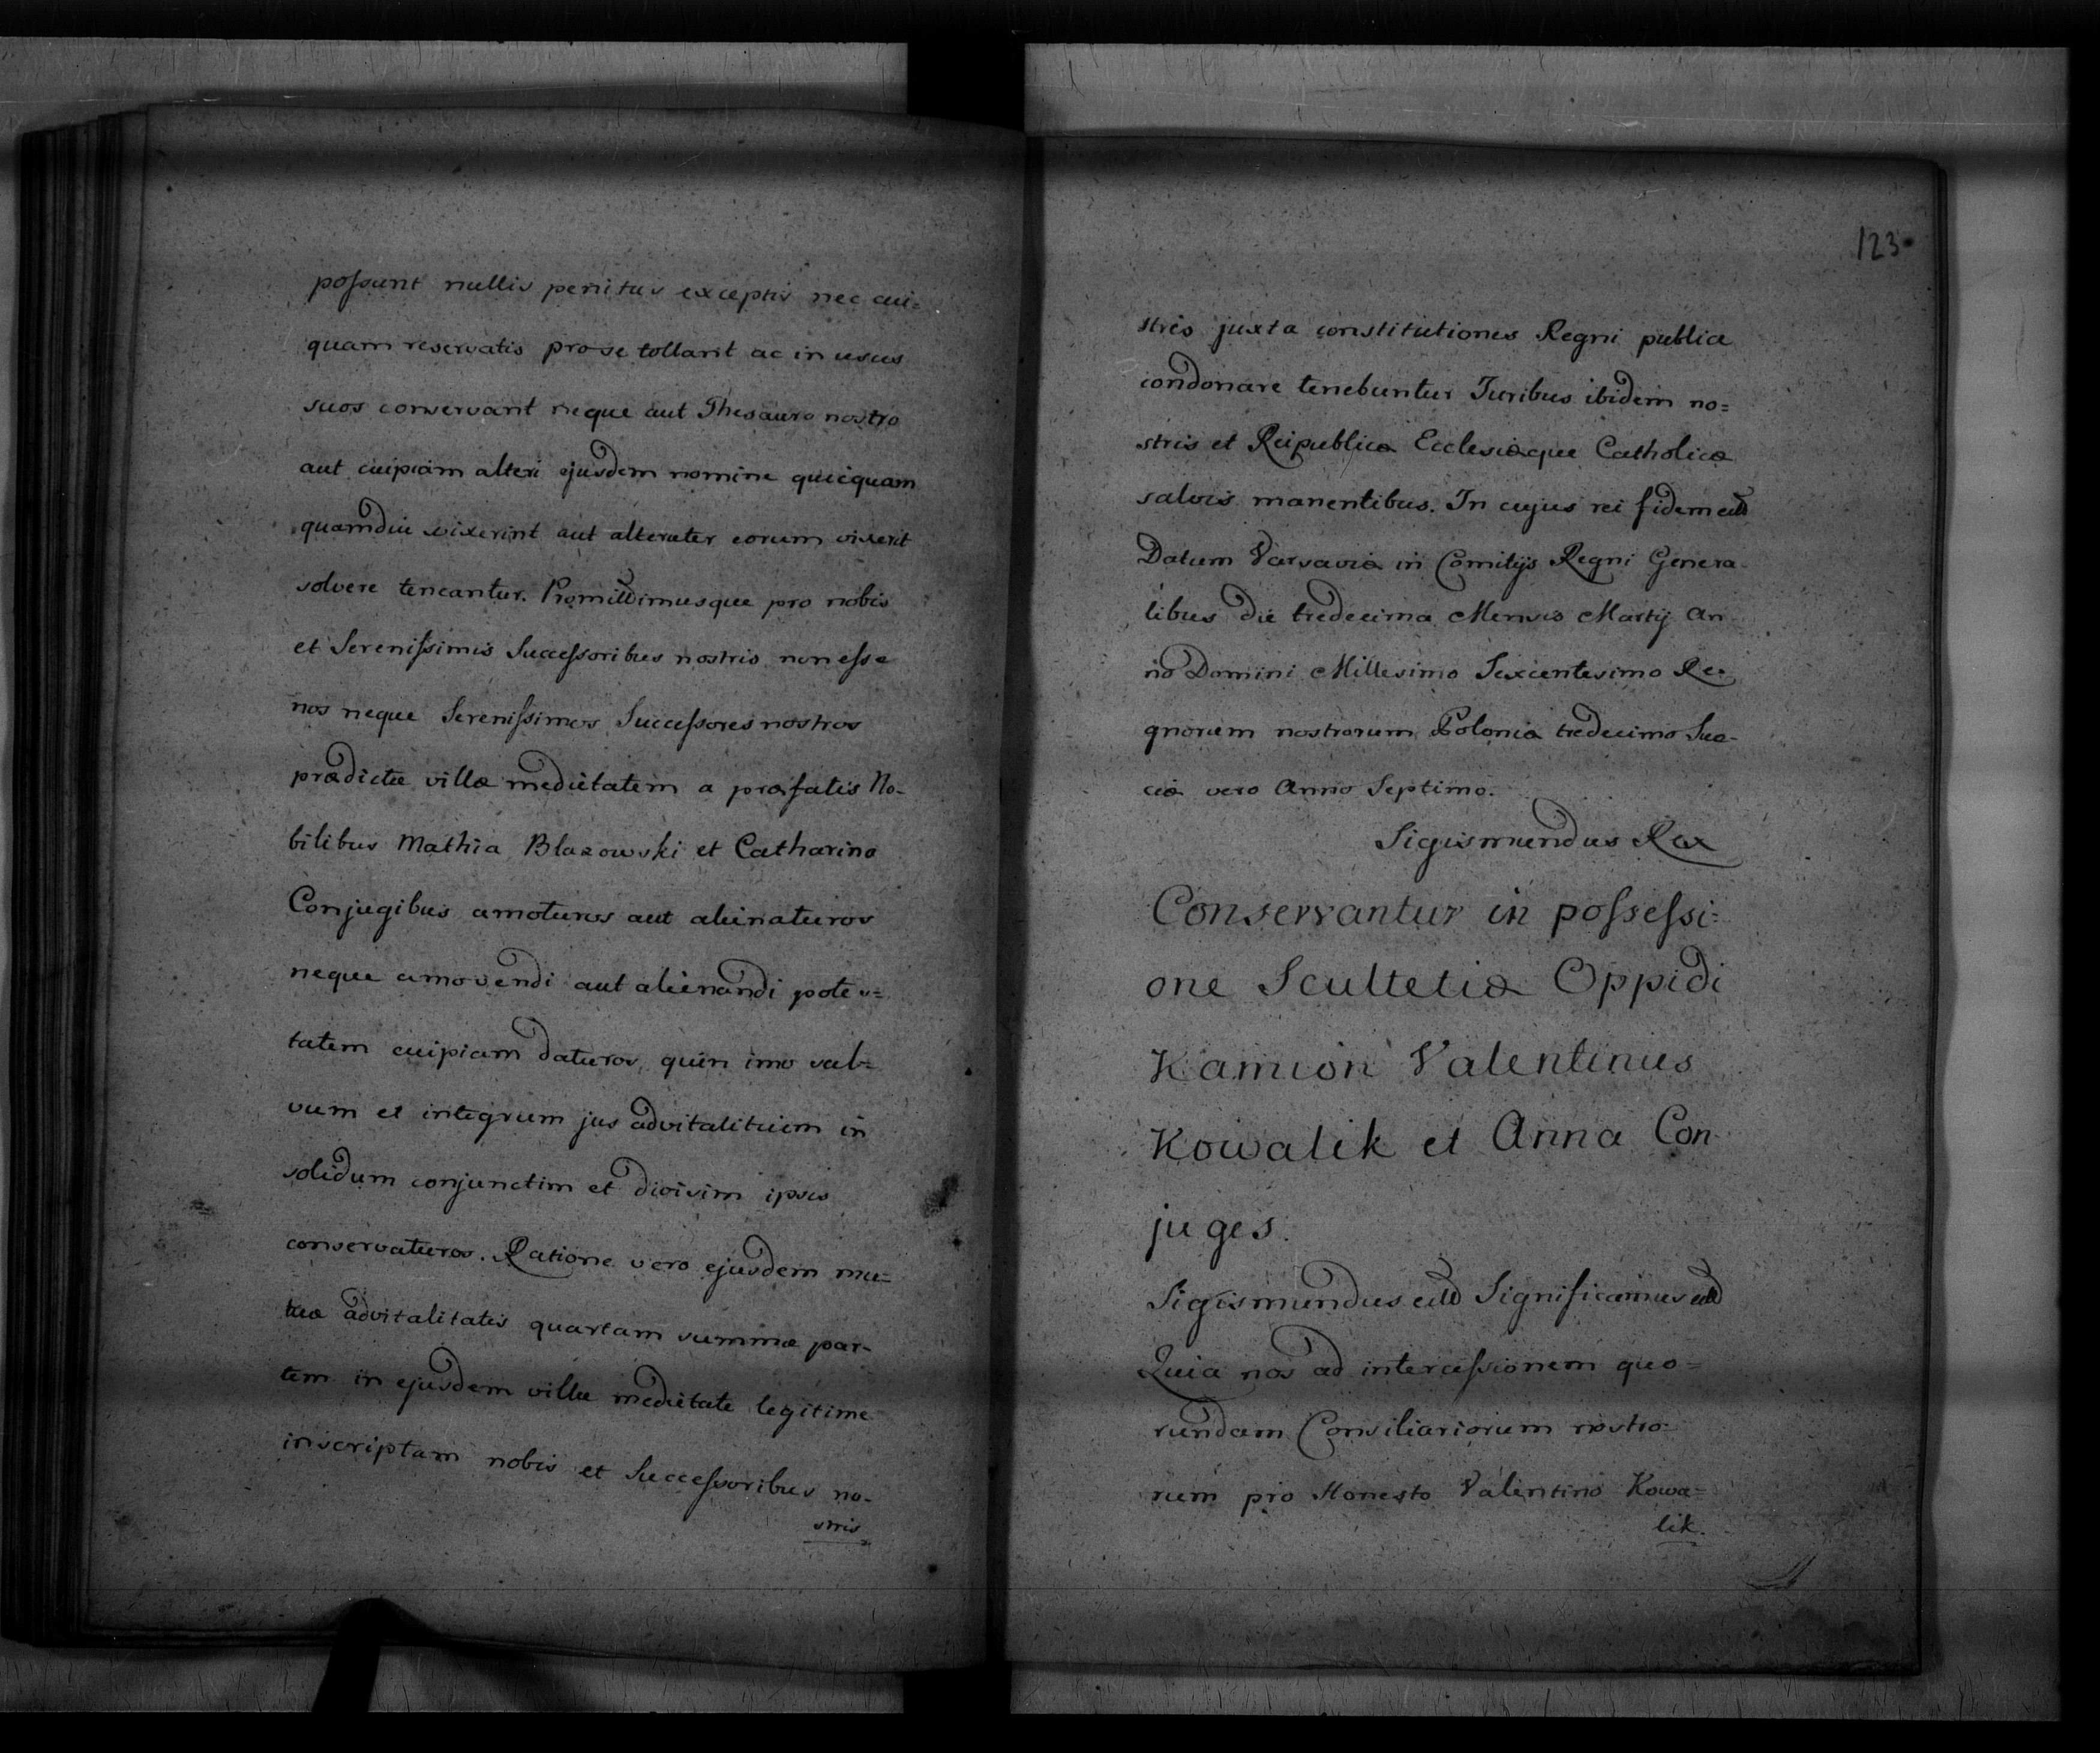 possunt nullis penitus exceptis nec cui=
quam reservatis pro se tollant ac in usus
suos conservant neque aut Thesauro nostro
aut cuipiam alteri ejusdem nomine quicquam
quamdiu vixerint aut alteruter eorum vixerit
solvere teneantur.
et Serenissimis Successoribus nostris non esse
nos neque Serenissimos Successores nostros
prædictæ villæ medietatem a præfatis No-
bilibus Mathia Blazowski et Catharina
Conjugibus amoturos aut alienaturos
neque amovendi aut alienandi potes=
tatem cuipiam daturos, quin imo sal=
vum et integrum jus advitalitium in
solidum conjunctim et divisim ipsis
conservaturos. Ratione vero ejusdem mu=
tuæ advitalitatis quartam summæ par-
tem in ejusdem villæ medietate legitime
inscriptam nobis et Successoribus no-
stris
123
stris juxta constitutiones Regni publice
condonare tenebuntur Juribus ibidem no=
stris et Reipublicæ Ecclesiæque Catholicæ
salvis manentibus. In cujus rei fidem
Datum Varsaviæ in Comitijs Regni Genera-
libus die tredecima Mensis Martij An-
no Domini Millesimo Sexcentesimo Re-
gnorum nostrorum Poloniæ tredecimo Sue-
ciæ vero Anno Septimo.
Sigismundus Rex
Conservantur in possessi=
one Scultetiæ Oppidi
Kamion Valentinus
Kowalik et Anna Con-
juges.
Sigismundus Significamus
Quia nos ad intercessionem quo=
rundam Consiliariorum nostro-
rum pro Honesto Valentino Kowa=
lik.